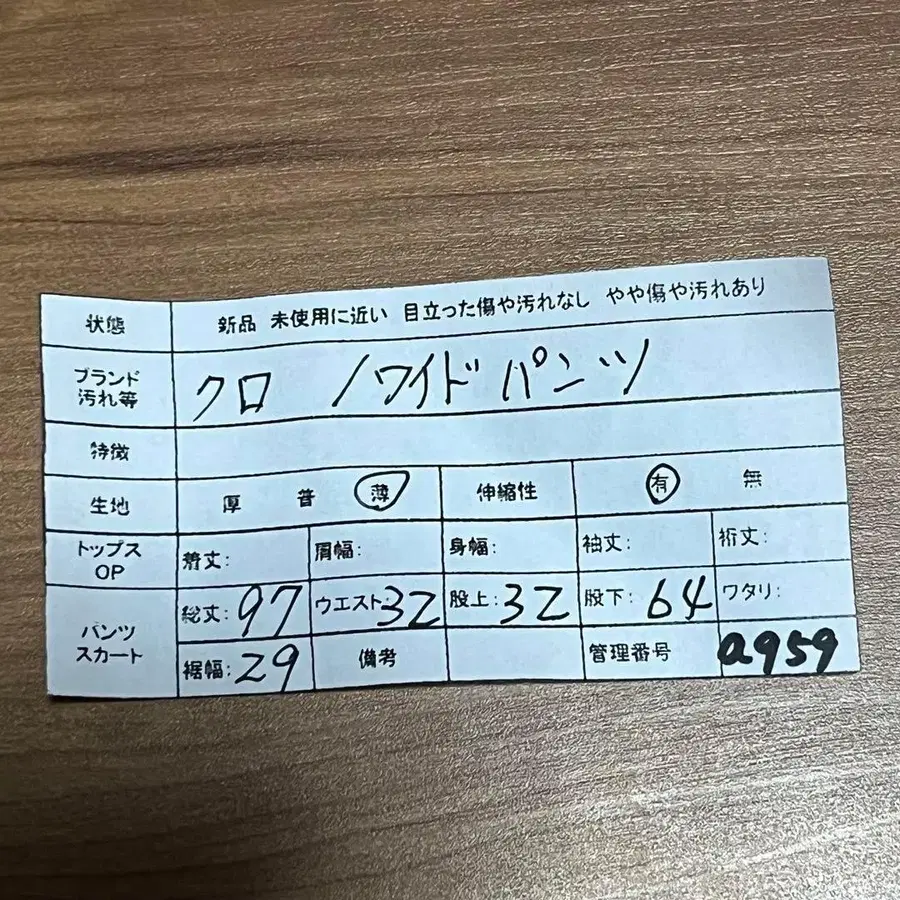 状態 新品 未使用に近い 目立った傷や汚れなし やや傷や汚れあり
ブランド
汚れ等
クロ ノワイドパンツ
特徴
生地 厚 普 薄 伸縮性 有 無
トップス
OP
着丈: 肩幅: 身幅: 袖丈: 裄丈:
パンツ
スカート
総丈:97 ウエスト:32 股上:32 股下:64 ワタリ:
裾幅:29 備考 管理番号 a959